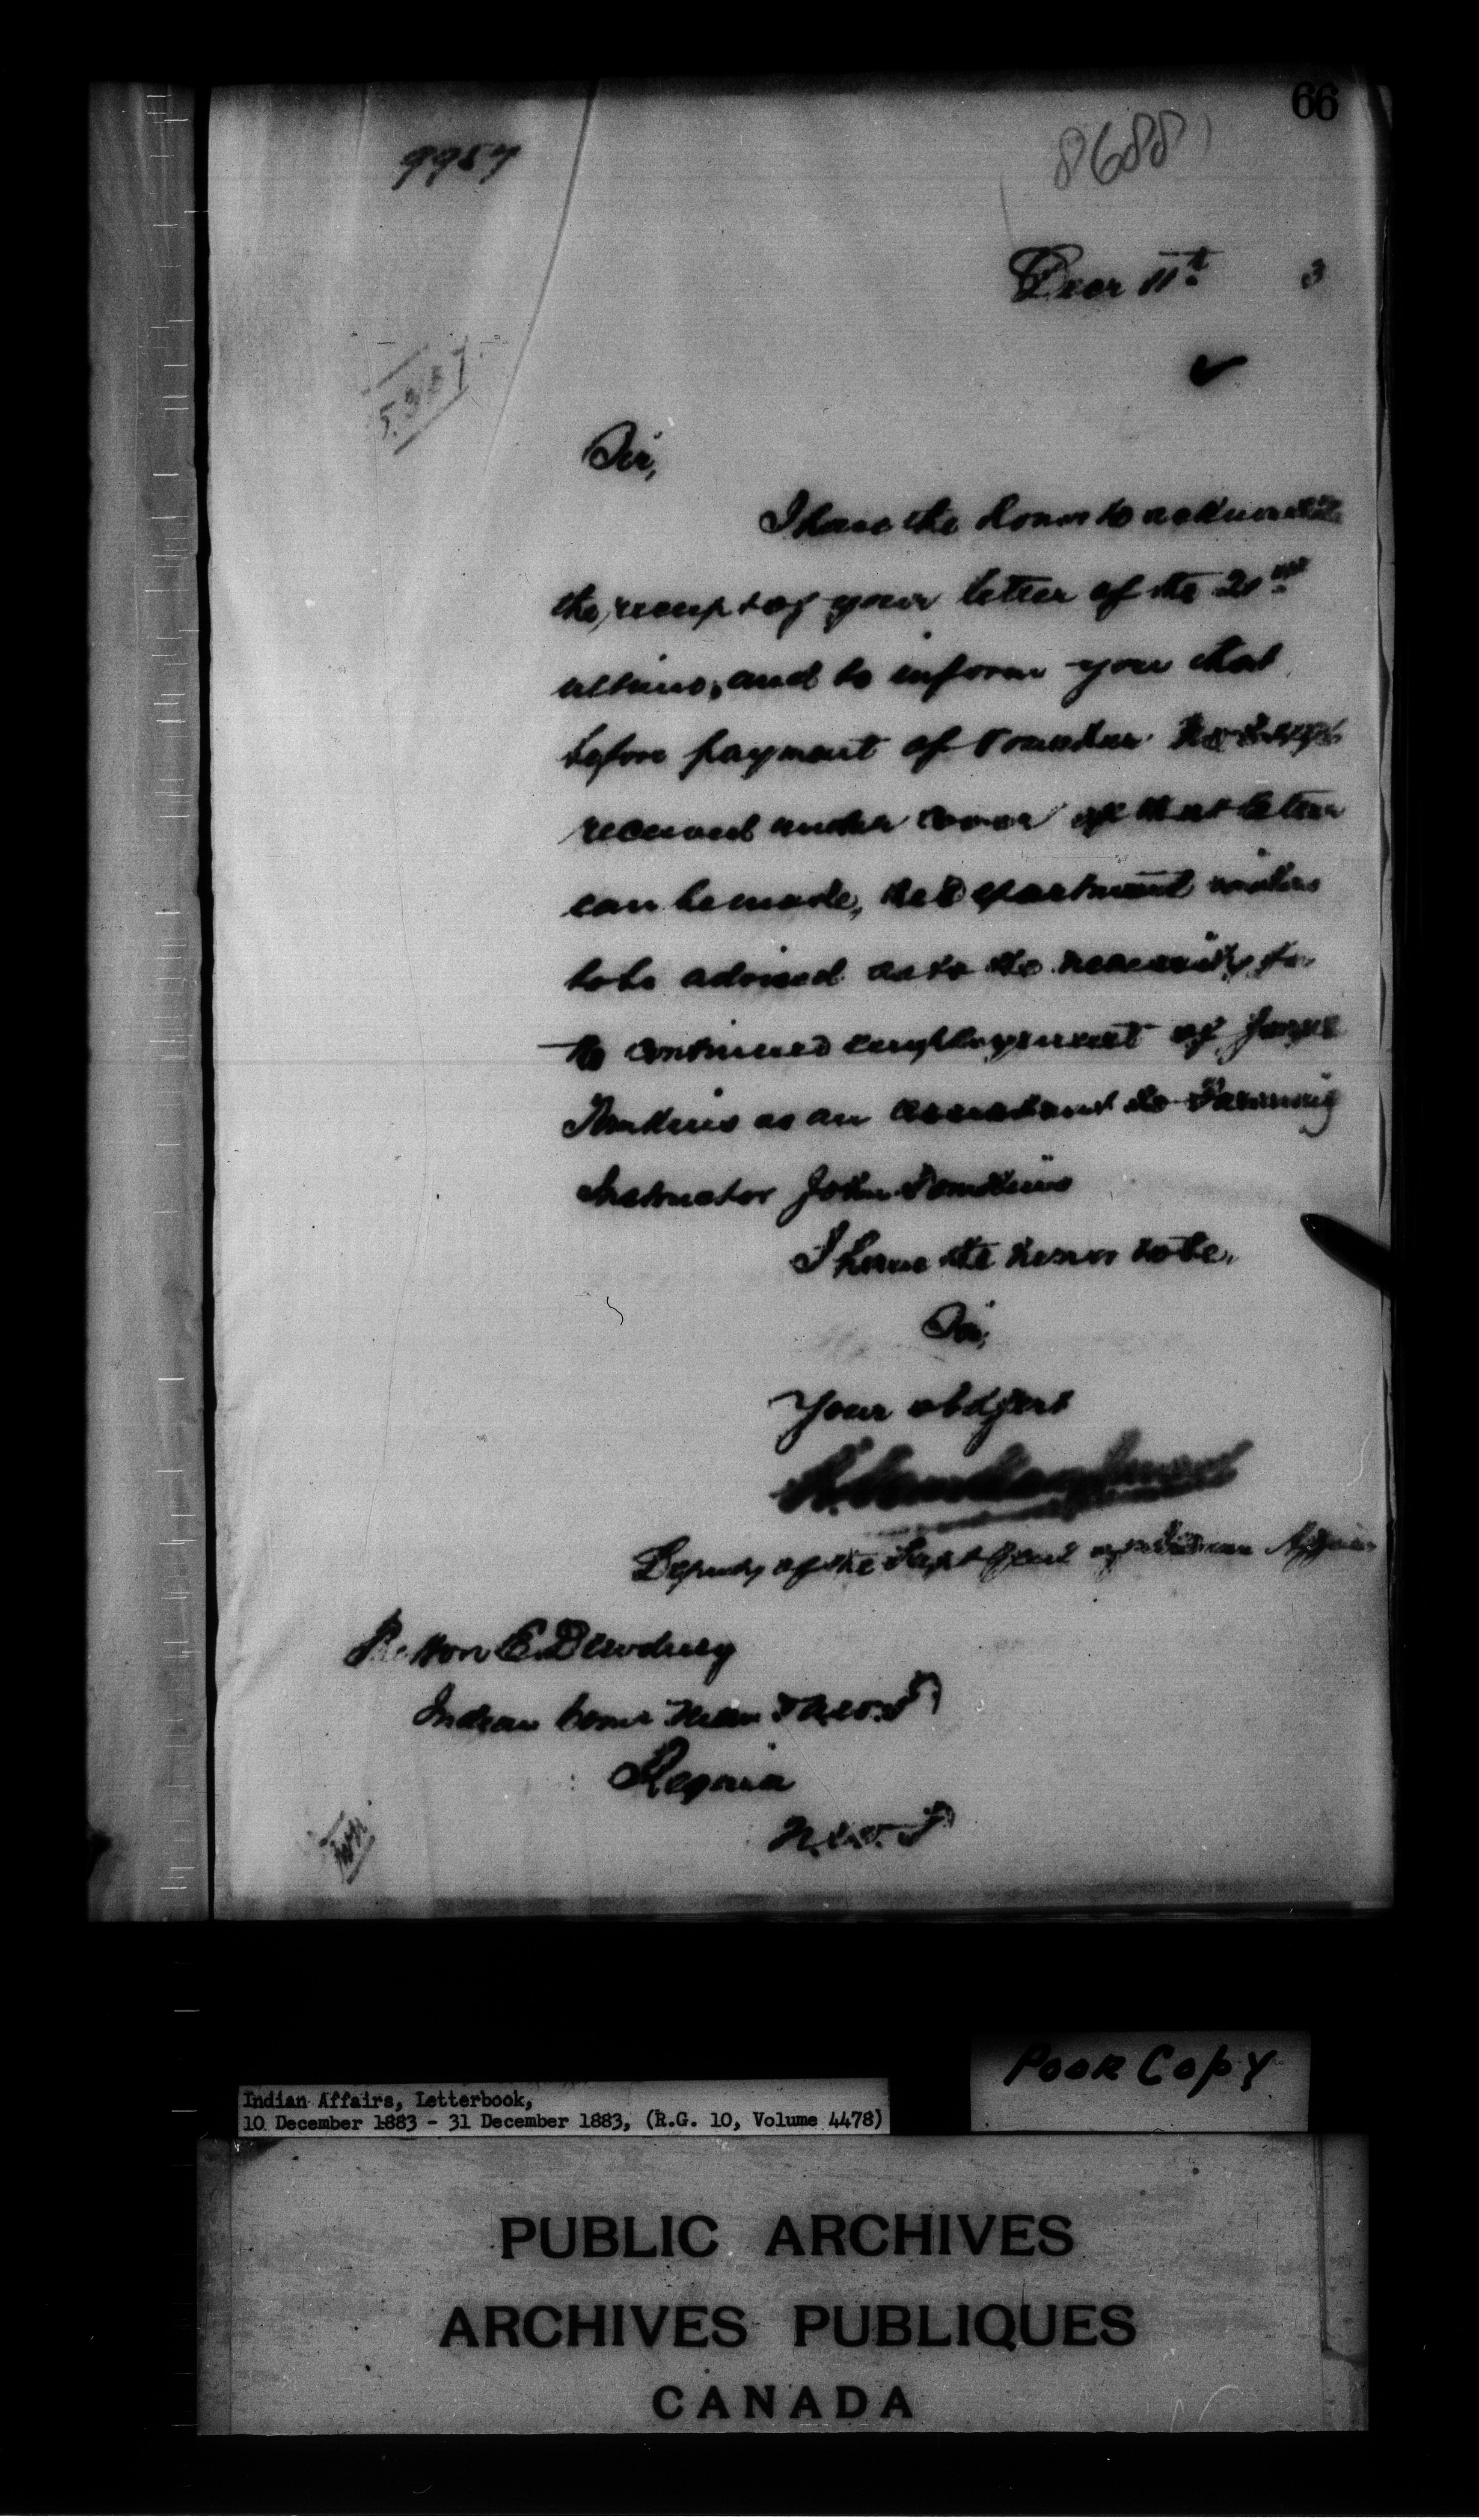 66
9957
8688
Decr 11th 3
Sir,
I have the honor to acknowledge
the receipt of your letter of the 20th
ultimo, and to inform you that
before payment of voucher No
received under cover of that letter
can be made, the Department wishes
to be advised as to the necessity for
the continued employment of James
Tomkins as an assistant to Farming
Instructor John Tomkins
I have the honor to be,
Sir,
Your obdt servt
L. Vankoughnet
Deputy of the Supt Genl of Indian Affairs
The Hon E. Dewdney
Indian Comr N.W.T.
Regina
N.W.T.
Poor Copy
Indian Affairs, Letterbook,
10 December 1883 - 31 December 1883, (R.G. 10, Volume 4478)
PUBLIC ARCHIVES
ARCHIVES PUBLIQUES
CANADA